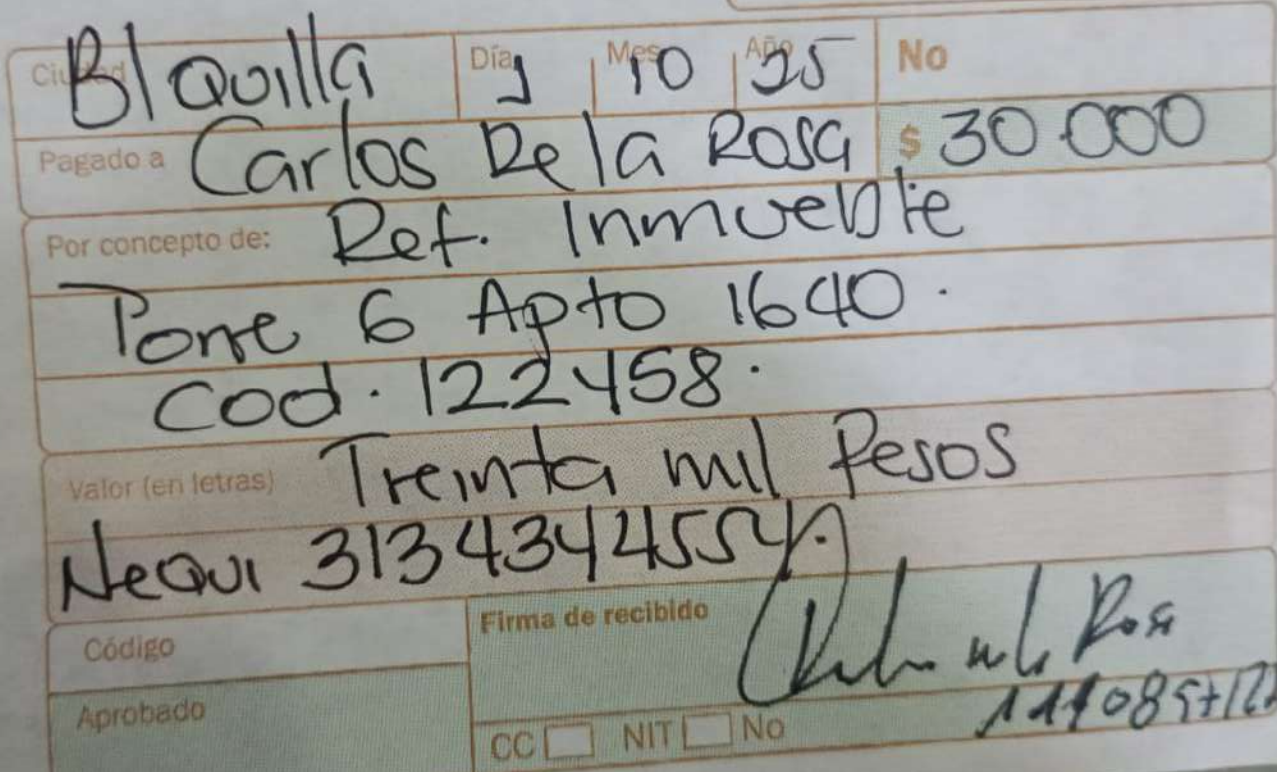 Ciudad B/Quilla Día 1 Mes 10 Año 25 No
Pagado a Carlos De la Rosa $ 30.000
Por concepto de: Ref. Inmueble
Torre 6 Apto 1640.
Cod. 122458.
Valor (en letras) Treinta mil Pesos
Nequi
Código Firma de recibido Rosa
Aprobado
CC NIT No